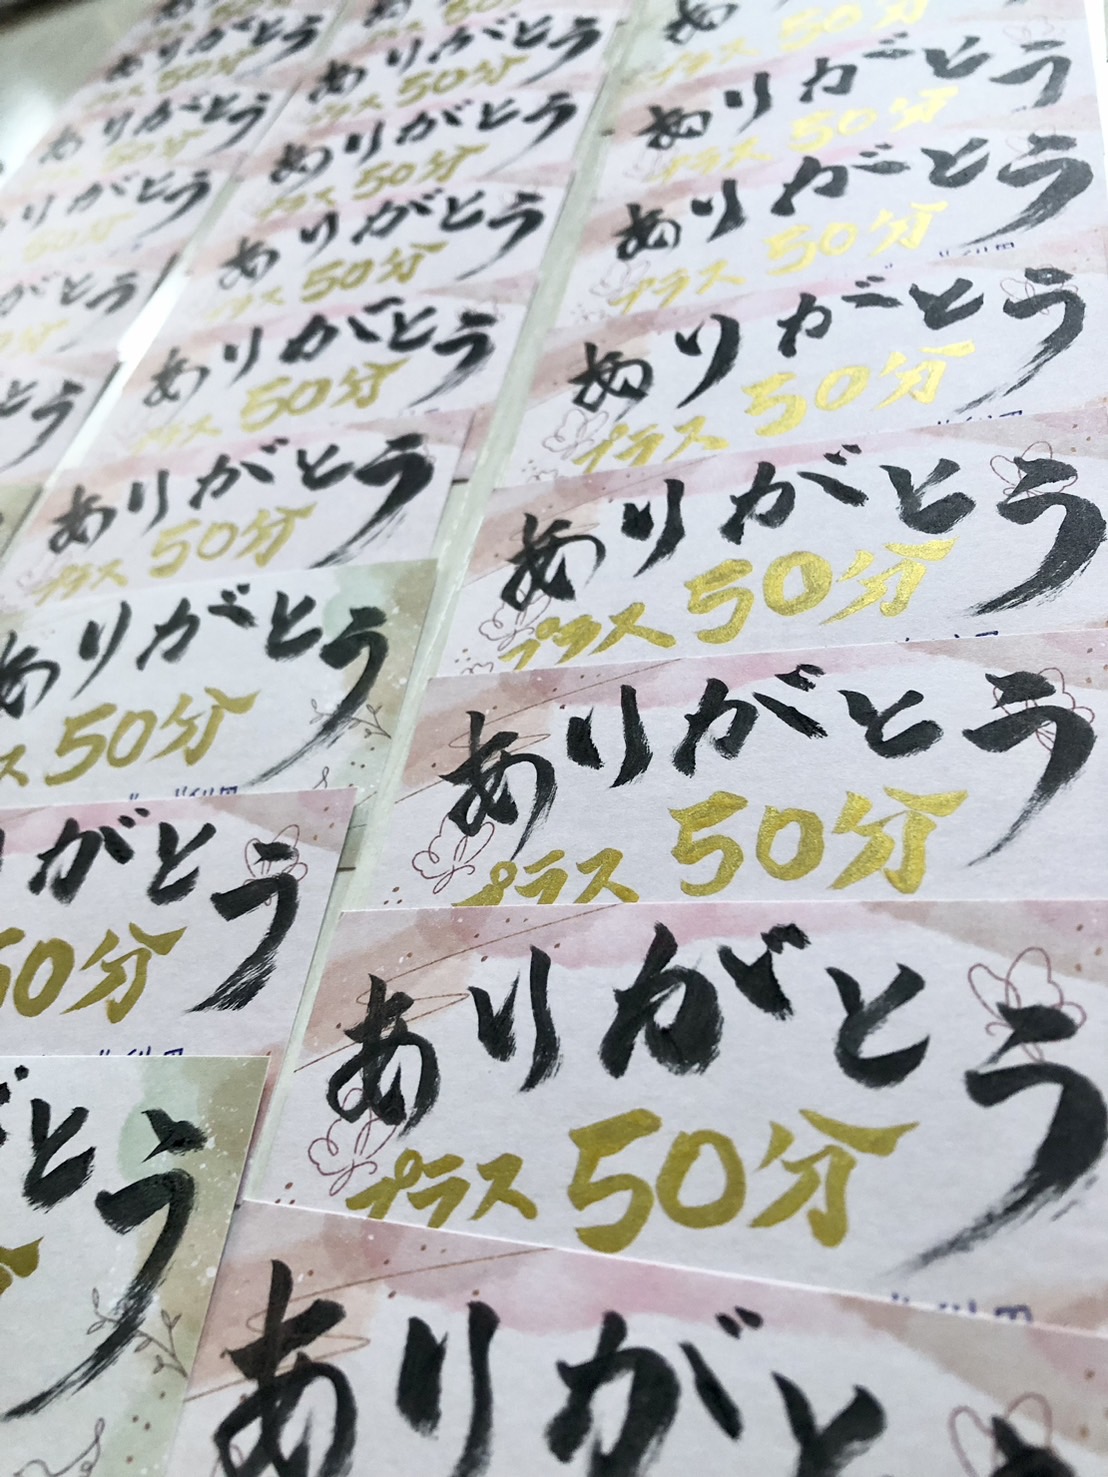 ありがとう
プラス 50分
ありがとう
プラス 50分
ありがとう
プラス 50分
ありがとう
プラス 50分
ありがとう
プラス 50分
ありがとう
プラス 50分
ありがとう
プラス 50分
ありがとう
ありがとう
プラス 50分
ありがとう
プラス 50分
ありがとう
プラス 50分
ありがとう
プラス 50分
ありがとう
プラス 50分
ありがとう
プラス 50分
ありがとう
ス 50分
がとう
50分
とう
ありがとう
プラス 50分
ありがとう
50分
りがとう
50分
がとう
とう